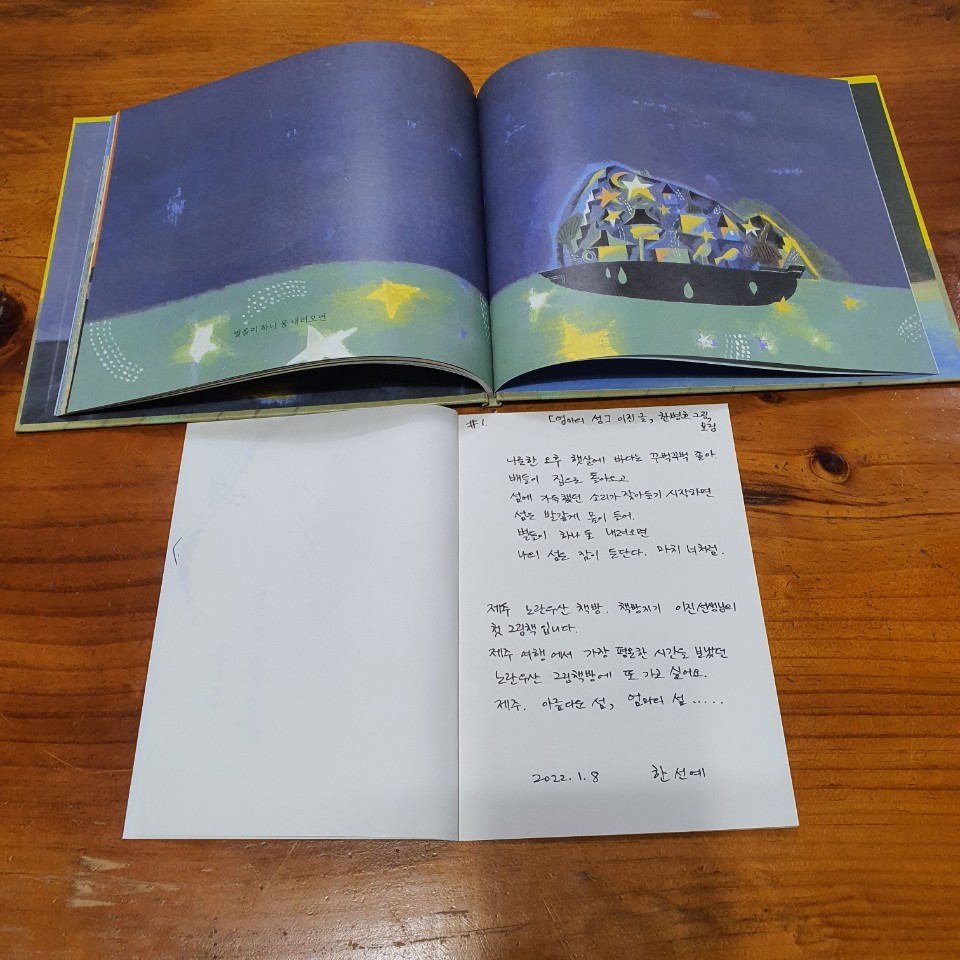 별들이 하나 둘 내려오면
#1. [엄마의 섬] 이진 글, 한병호 그림,
보림
나른한 오후 햇살에 바다는 꾸벅꾸벅 졸아.
배들이 집으로 돌아오고
섬에 가득했던 소리가 잦아들기 시작하면
섬은 발갛게 몸이 들어.
별들이 하나 둘 내려오면
나의 섬은 잠이 든단다. 마치 너처럼.
제주 노란우산 책방. 책방지기 이진선생님의
첫 그림책 입니다.
제주 여행에서 가장 평온한 시간을 보냈던
노란우산 그림책방에 또 가고 싶어요.
제주. 아름다운 섬, 엄마의 섬.....
2022.1.8 한선예